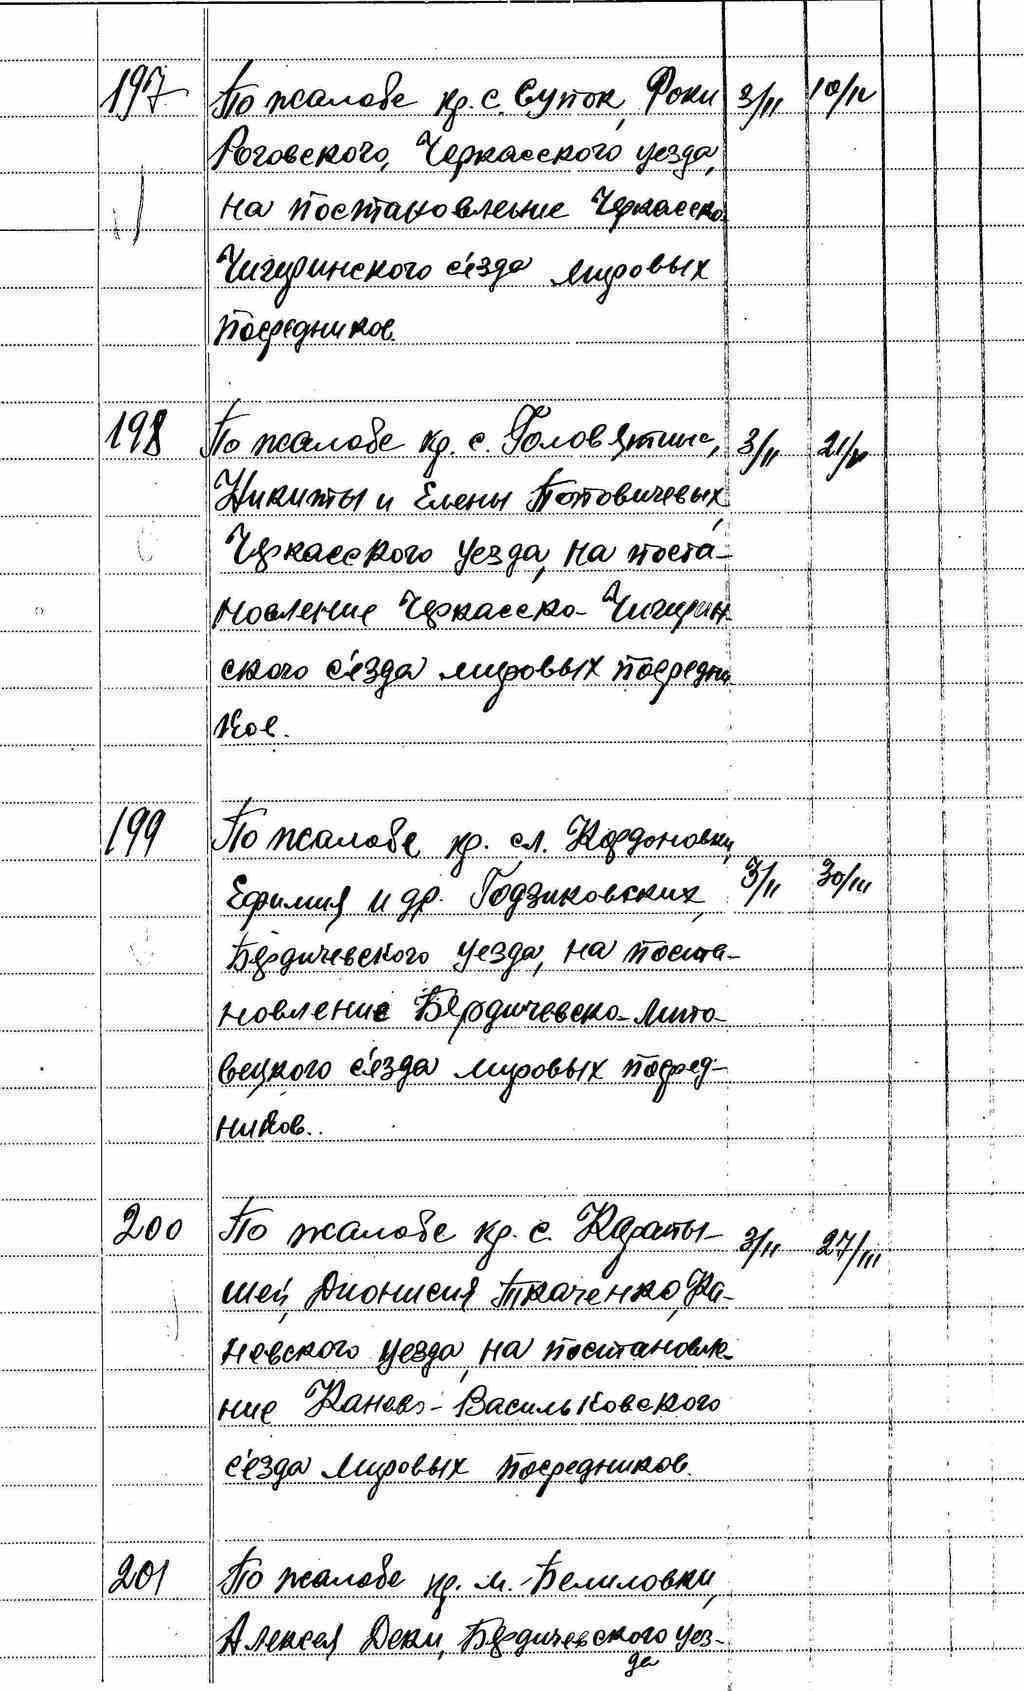 197 По жалобе кр. с. Суток, Фоки 3/II 10/IV
Роговского, Черкасского уезда,
на постановление Черкасско-
Чигиринского с'езда мировых
посредников.
198 По жалобе кр. с. Головятино, 3/II 21/IV
Никиты и Елены Поповичевых,
Черкасского уезда, на поста-
новление Черкасско-Чигирин-
ского с'езда мировых посредни-
ков.
199 По жалобе кр. сл. Кордоновки,
Ефимия и др. Годзиковских, 3/II 30/III
Бердичевского уезда, на поста-
новление Бердичевско-Липо-
вецкого с'езда мировых посред-
ников.
200 По жалобе кр. с. Караты- 3/II 27/III
шей, Дионисия Ткаченко, Ка-
невского уезда, на постановле-
ние Канево-Васильковского
с'езда мировых посредников.
201 По жалобе кр. м. Белиловки,
Алексея Деки, Бердичевского уез-
да